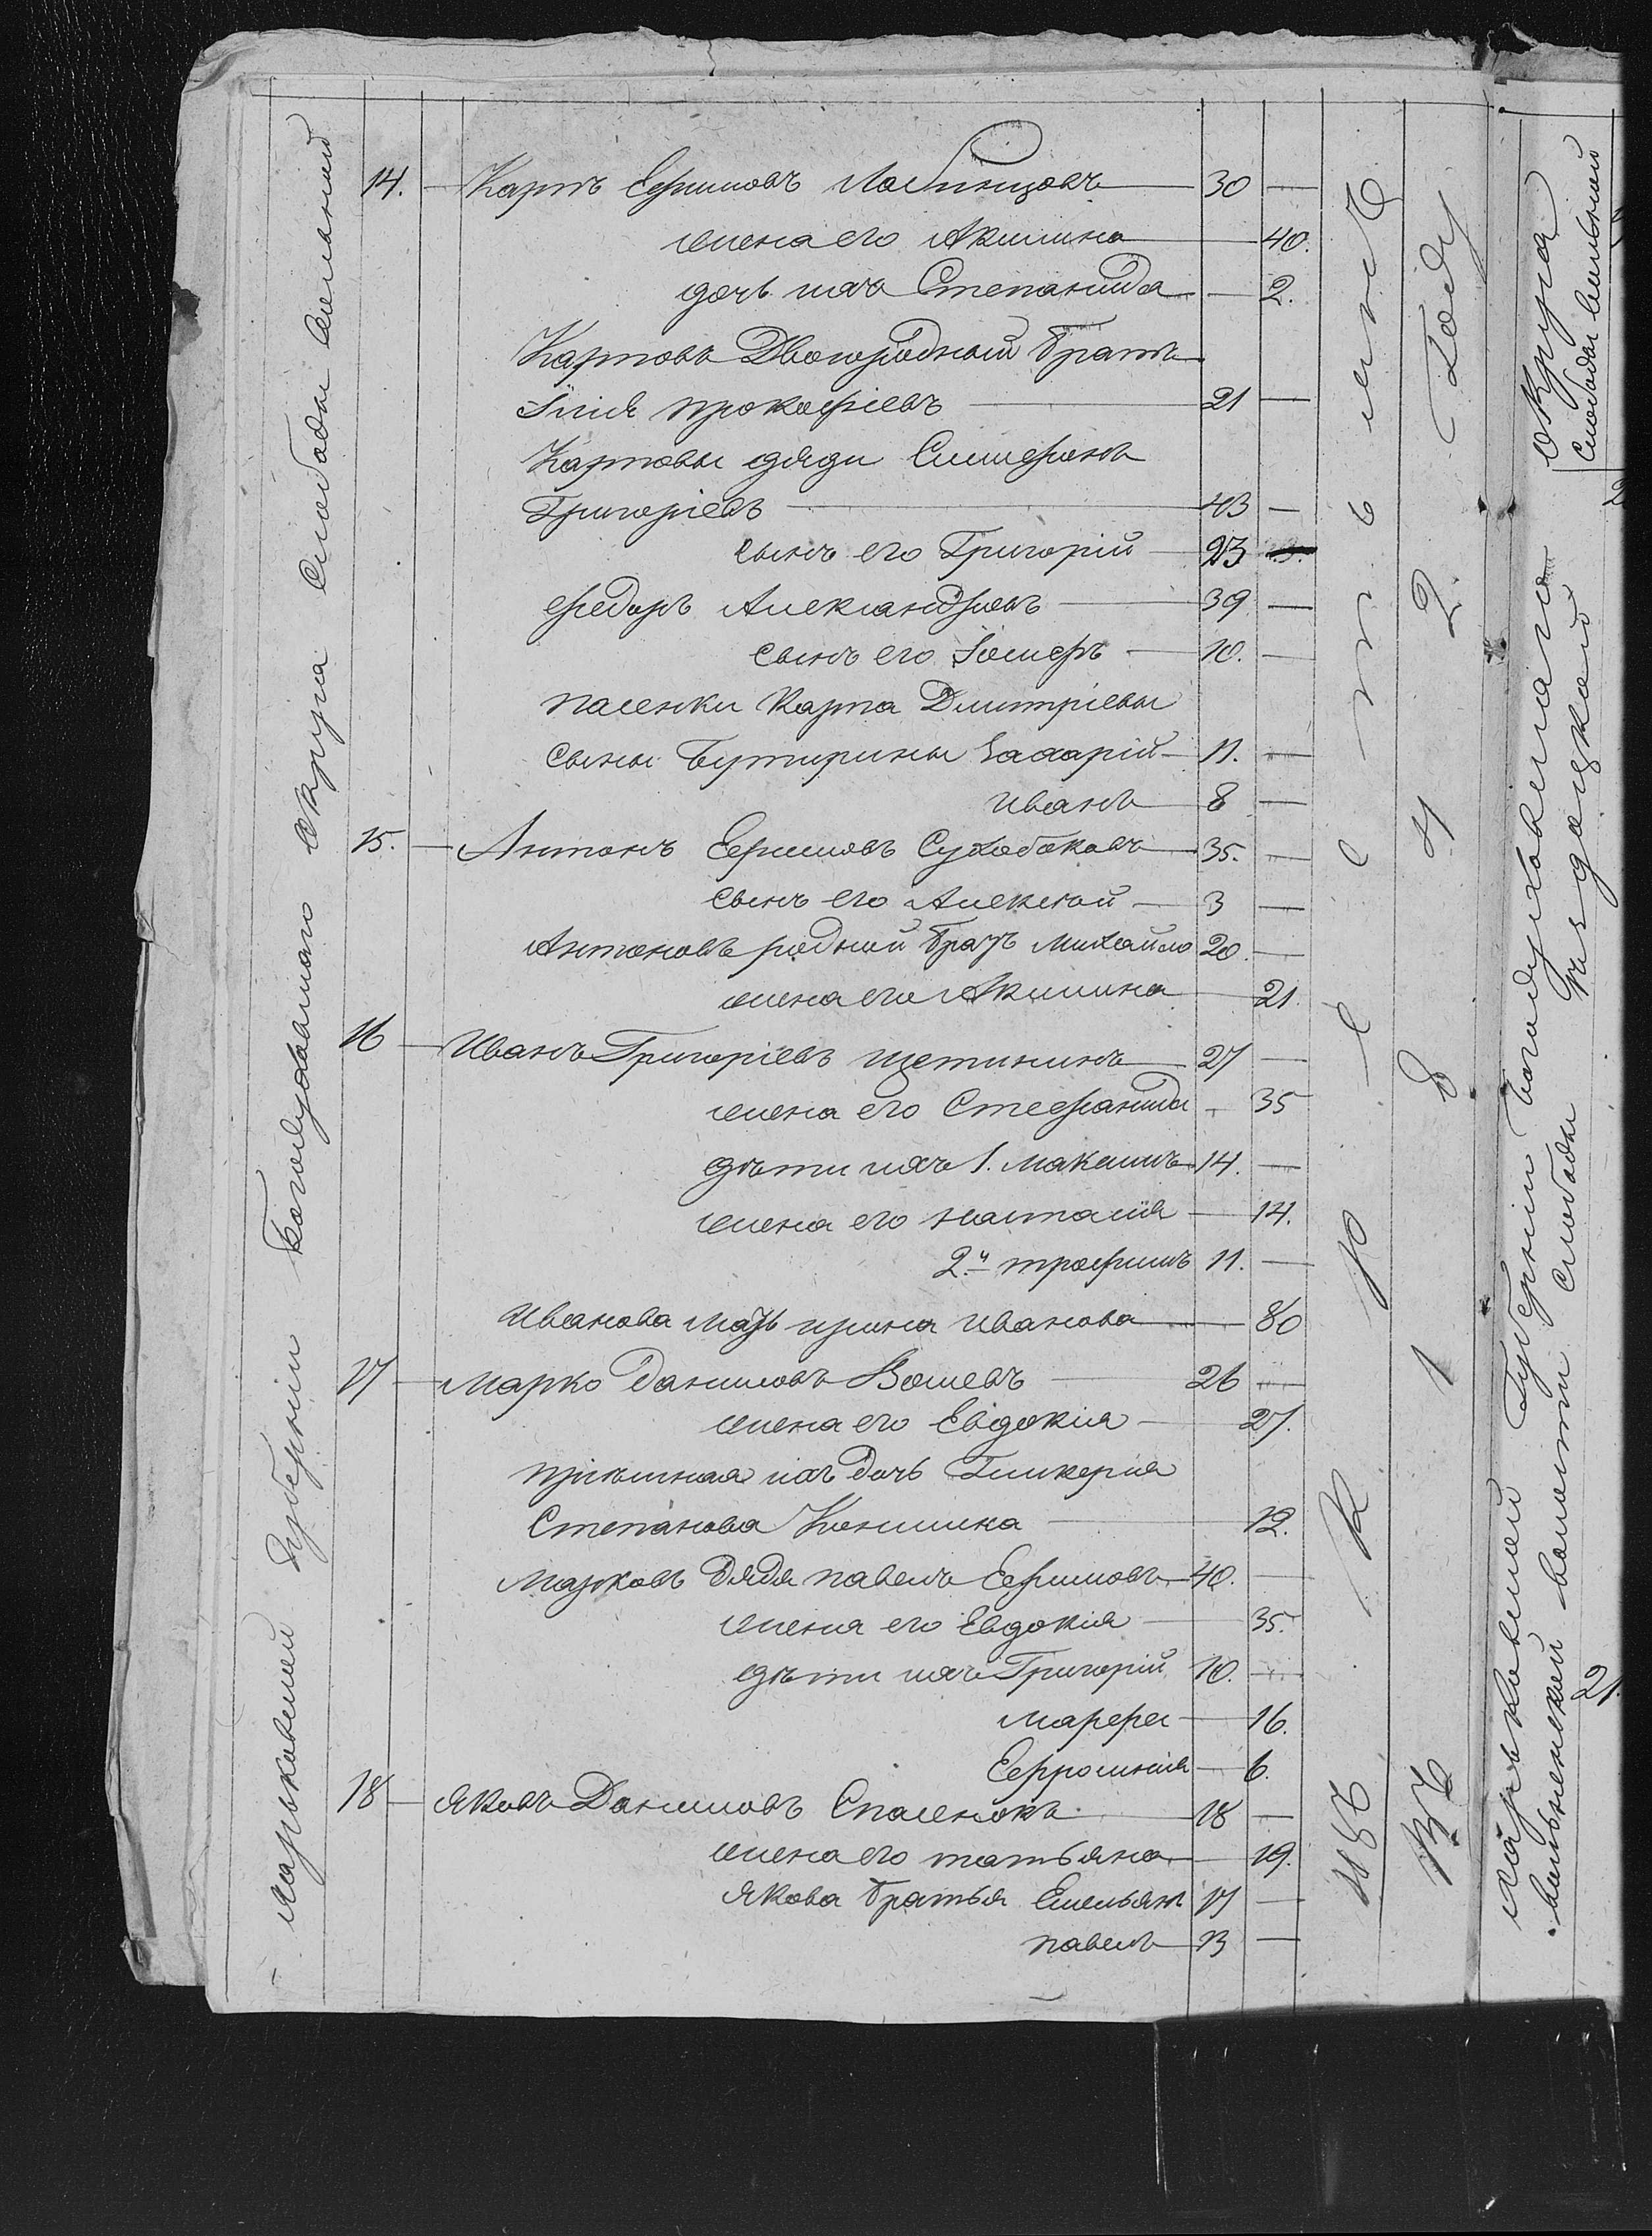 Харьковской Губерніи Богодуховскаго округа Слободы Вольной
14. Карпъ Ефимовъ Лобинцовъ 30
жена его Акилина 40.
дочь ихъ Степанида 2.
Карповъ Двоюродный братъ
Илія Прокофіевъ 21
Карповы дяди Симеронъ
Григоріевъ 43
сынъ его Григорій 23
Федоръ Александровъ 39
сынъ его 10.
пасенки Карпа Дмитріевы
сыны Бутирины Захарій 11.
Иванъ 8
15. Антонъ Ефимовъ Сухобоковъ 35.
сынъ его Алексей 3
Антоновъ родной братъ Михайло 20.
жена его Акилина 21.
16 Иванъ Григоріевъ Щетининъ 27
жена его Стефанида 35
дѣти ихъ 1. Максимъ 14.
жена его Наталія 14.
2.й Трофимъ 11.
Иванова мать Ирина Иванова 80
17 Марко Даниловъ 26
жена его Евдокія 27.
пріемная ихъ дочь Гликерія
Степанова 12.
Марковъ дядя Павелъ Ефимовъ 40.
жена его Евдокія 35.
дѣти ихъ Григорій 10.
Марфа 16.
Ефросинія 6.
18 Яковъ Даниловъ Спасенокъ 18
жена его Татьяна 19.
Якова братья Емельянъ 17
Павелъ 13
Въ 1842 Году
Харьковской Губерніи Богодуховскаго округа
Вольновской волости Слободы
Слободы Вольной
21.